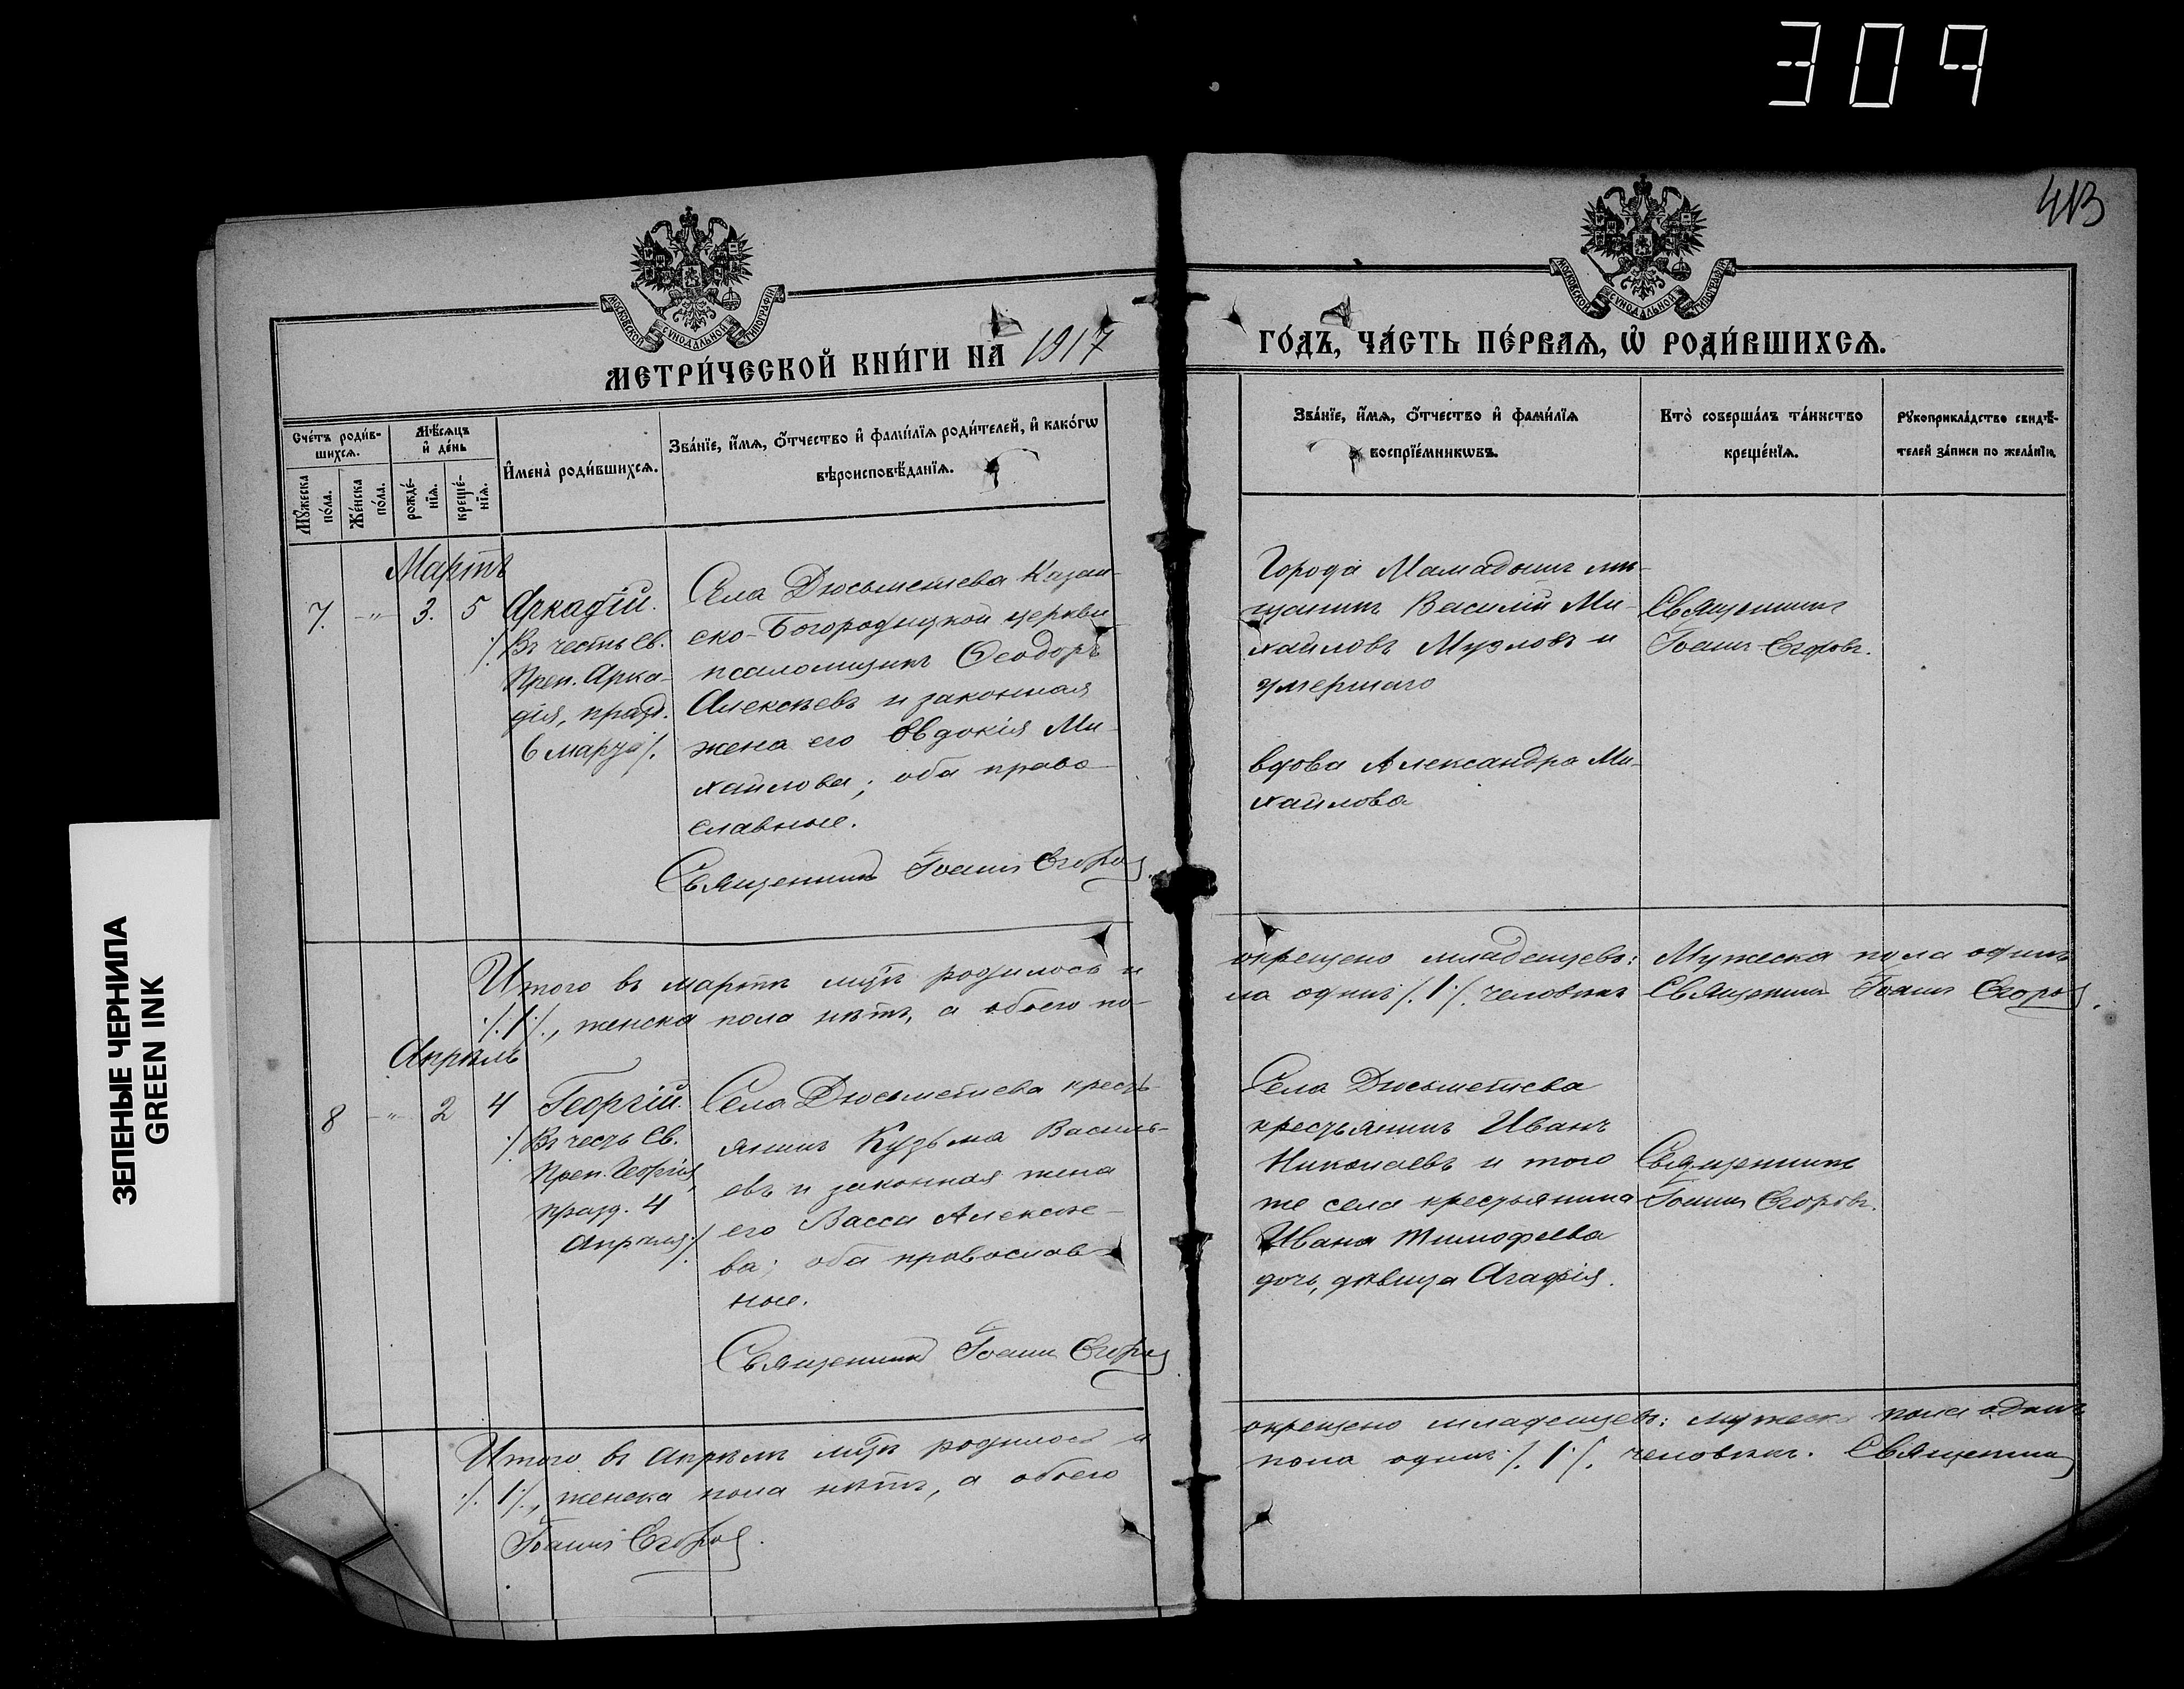 309
413
МОСКОВСКОЙ СѴНОДАЛЬНОЙ ТИПОГРАФІИ
МОСКОВСКОЙ СѴНОДАЛЬНОЙ ТИПОГРАФІИ
МЕТРИ́ЧЕСКОЙ КНИ́ГИ НА 1917
ГО́ДЪ, ЧА́СТЬ ПЕ́РВАѦ, Ѡ҆ РОДИ́ВШИХСѦ.
Сче́тъ роди́в-
шихсѧ.
Мѣ́сѧцъ
и҆ де́нь
Мꙋ́жеска
по́ла.
Же́нска
по́ла.
рожде́-
нїѧ.
креще́-
нїѧ.
И҆мена̀ роди́вшихсѧ.
Зва́нїе, и҆́мѧ, ѻ҆́тчество и҆ фамѝлїѧ роди́телей, и҆ како́гѡ
вѣроисповѣ́данїѧ.
Зва́нїе, и҆́мѧ, ѻ҆́тчество и҆ фамѝлїѧ
воспрїе́мникѡвъ.
Кто̀ соверша́лъ та́инство
креще́нїѧ.
Рꙋкоприкла́дство свидѣ́-
телей за́писи по жела́нїю.
Мартъ
7. -"- 3. 5
Аркадій.
/. Въ честь Св.
Преп. Арка-
дія, празд.
6 марта /.
Села Дюсьметева Казан-
ско-Богородицкой церкви
псаломщикъ Ѳеодоръ
Алексѣевъ и законная
жена его Евдокія Ми-
хайлова; оба право-
славные.
Священникъ Іоаннъ Егоровъ.
Города Мамадыша мѣ-
щанинъ Василій Ми-
хайловъ Музловъ и
умершаго
вдова Александра Ми-
хайлова
Священникъ
Іоаннъ Егоровъ.
Итого въ мартѣ мцѣ родилось и
./.1/., женска пола нѣтъ, а обоего по-
окрещено младенцевъ: Мужеска пола одинъ
ла одинъ /.1/. человѣкъ Священникъ Іоаннъ Егоровъ.
Апрѣль
8 -"- 2 4
Георгій.
/. Въ честь Св.
Преп. Георгія,
празд. 4
Апрѣля /.
Села Дюсьметева кресть-
янинъ Кузьма Василь-
евъ и законная жена
его Васса Алексѣе-
ва; оба православ-
ные.
Священникъ Іоаннъ Егоровъ
Села Дюсьметева
крестьянинъ Иванъ
Николаевъ и того
же села крестьянина
Ивана Тимофеева
дочь, дѣвица Агафія.
Священникъ
Іоаннъ Егоровъ.
Итого въ Апрѣлѣ мцѣ родилось и
./.1/., женска пола нѣтъ, а обоего
окрещено младенцевъ: мужеска пола одинъ
пола одинъ /.1/. человѣкъ. Священникъ
Іоаннъ Егоровъ.
ЗЕЛЕНЫЕ ЧЕРНИЛА
GREEN INK